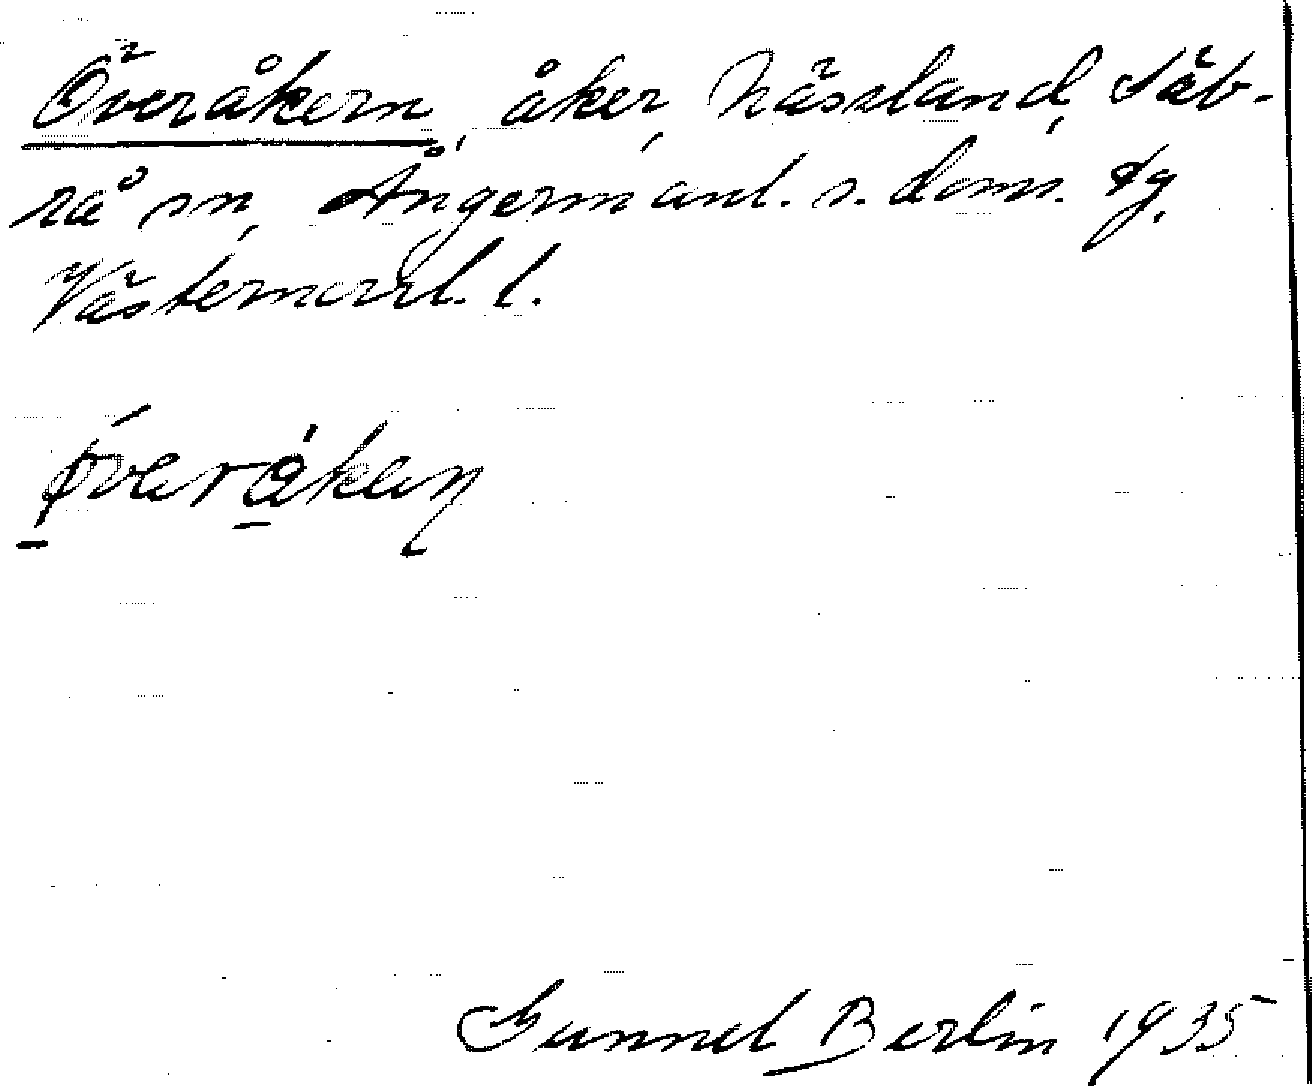 Överåkern, åker, Näsland, Säb-
rå sn, Ångermanl. s. doms. tg,
Västernorrl. l.
øveråkeɳ
Gunnel Berlin 1935